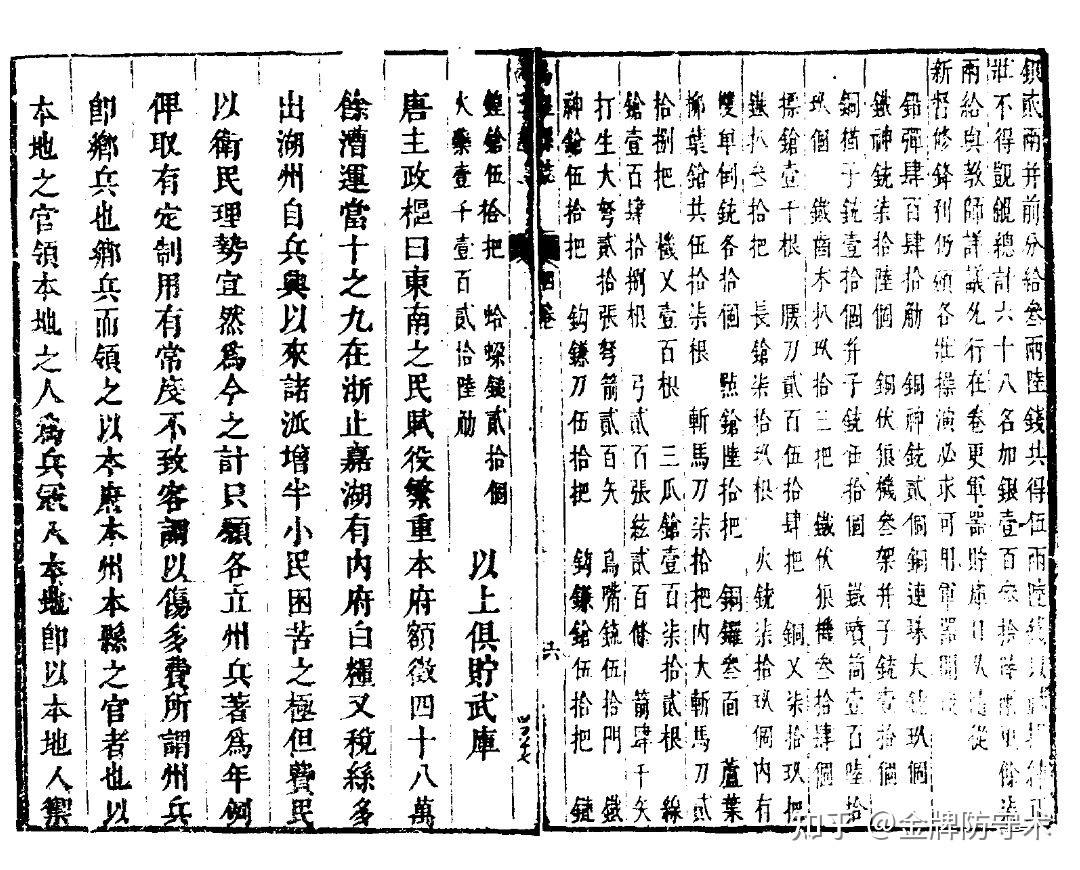 銀貳兩并前分給叁兩陸錢共得伍兩陸錢
壯不得覬覦總計六十八名加銀壹百
兩給與教師詳議允行在卷更軍器貯庫
新督修鋒利仍願各壯操演必求可用軍器開
鉛彈肆百肆拾觔 銅神銃貳個銅連珠大銃玖個
鐵神銃柒拾陸個 銅伏狼機叁架并子銃壹拾個
銅楢子銃壹拾個并子銃伍拾個 鐵噴筒壹百陸拾
玖個 鐵齒木扒玖拾三把 鐵伏狼機叁拾肆個
標鎗壹千根 腰刀貳百伍拾肆把 銅叉柒拾玖把
鐵扒叁拾把 長鎗柒拾玖根 火銃柒拾玖個內有
雙單倒銃各拾個 點鎗陸拾把 銅鑼叁面 蘆葉
柳葉鎗共伍拾柒根 斬馬刀柒拾把內大斬馬刀貳
拾捌把 檄叉壹百根 三瓜鎗壹百柒拾貳根 線
鎗壹百肆拾捌根 弓貳百張絃貳百條 箭肆千矢
打生大弩貳拾張弩箭貳百矢 鳥嘴銃伍拾門 鐵
神鎗伍拾把 鈎鐮刀伍拾把 鈎鐮鎗伍拾把 鏈
四卷
六
鏈鎗伍拾把 蛤蜾鐽貳拾個 以上俱貯武庫
火藥壹千壹百貳拾陸觔
唐主政樞曰東南之民賦役繁重本府額徵四十八萬
餘漕運當十之九在浙止嘉湖有內府白糧又稅絲多
出湖州自兵興以來諸派增半小民困苦之極但費民
以衛民理勢宜然爲今之計只願各立州兵著爲年例
俾取有定制用有常度不致客調以傷多費所謂州兵
即鄉兵也鄉兵而領之以本府本州本縣之官者也以
本地之官領本地之人爲兵冦入本地即以本地人禦
知乎 @金牌防守术